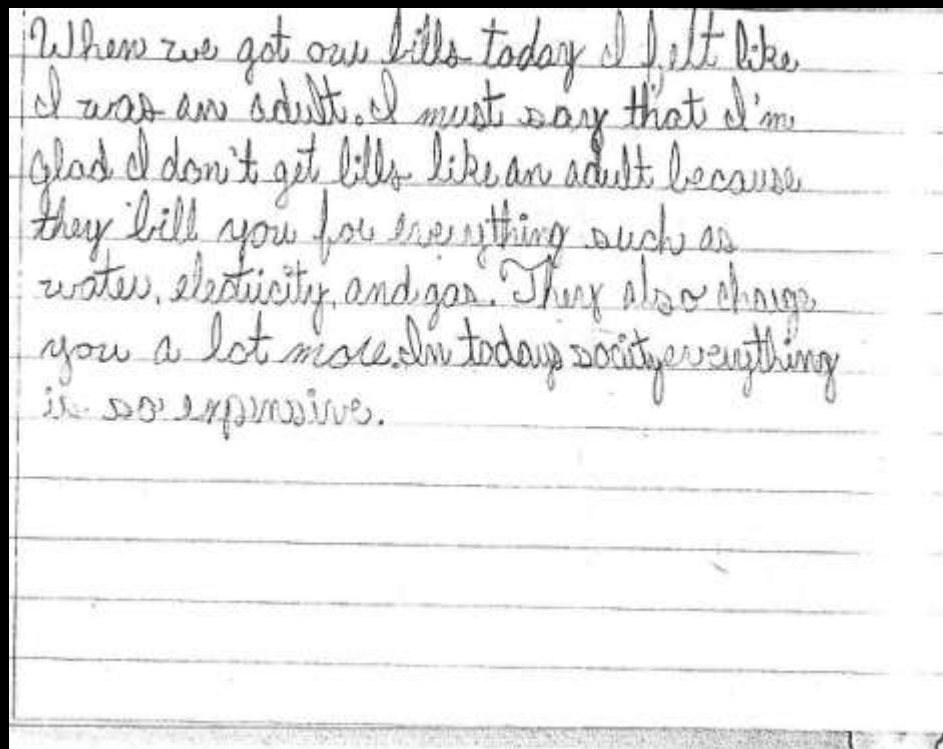 When we got our bills today I felt like
I was an adult. I must say that I'm
glad I don't get bills like an adult because
they bill you for everything such as
water, electricity, and gas. They also charge
you a lot more. In todays socity everything
is so expensive.